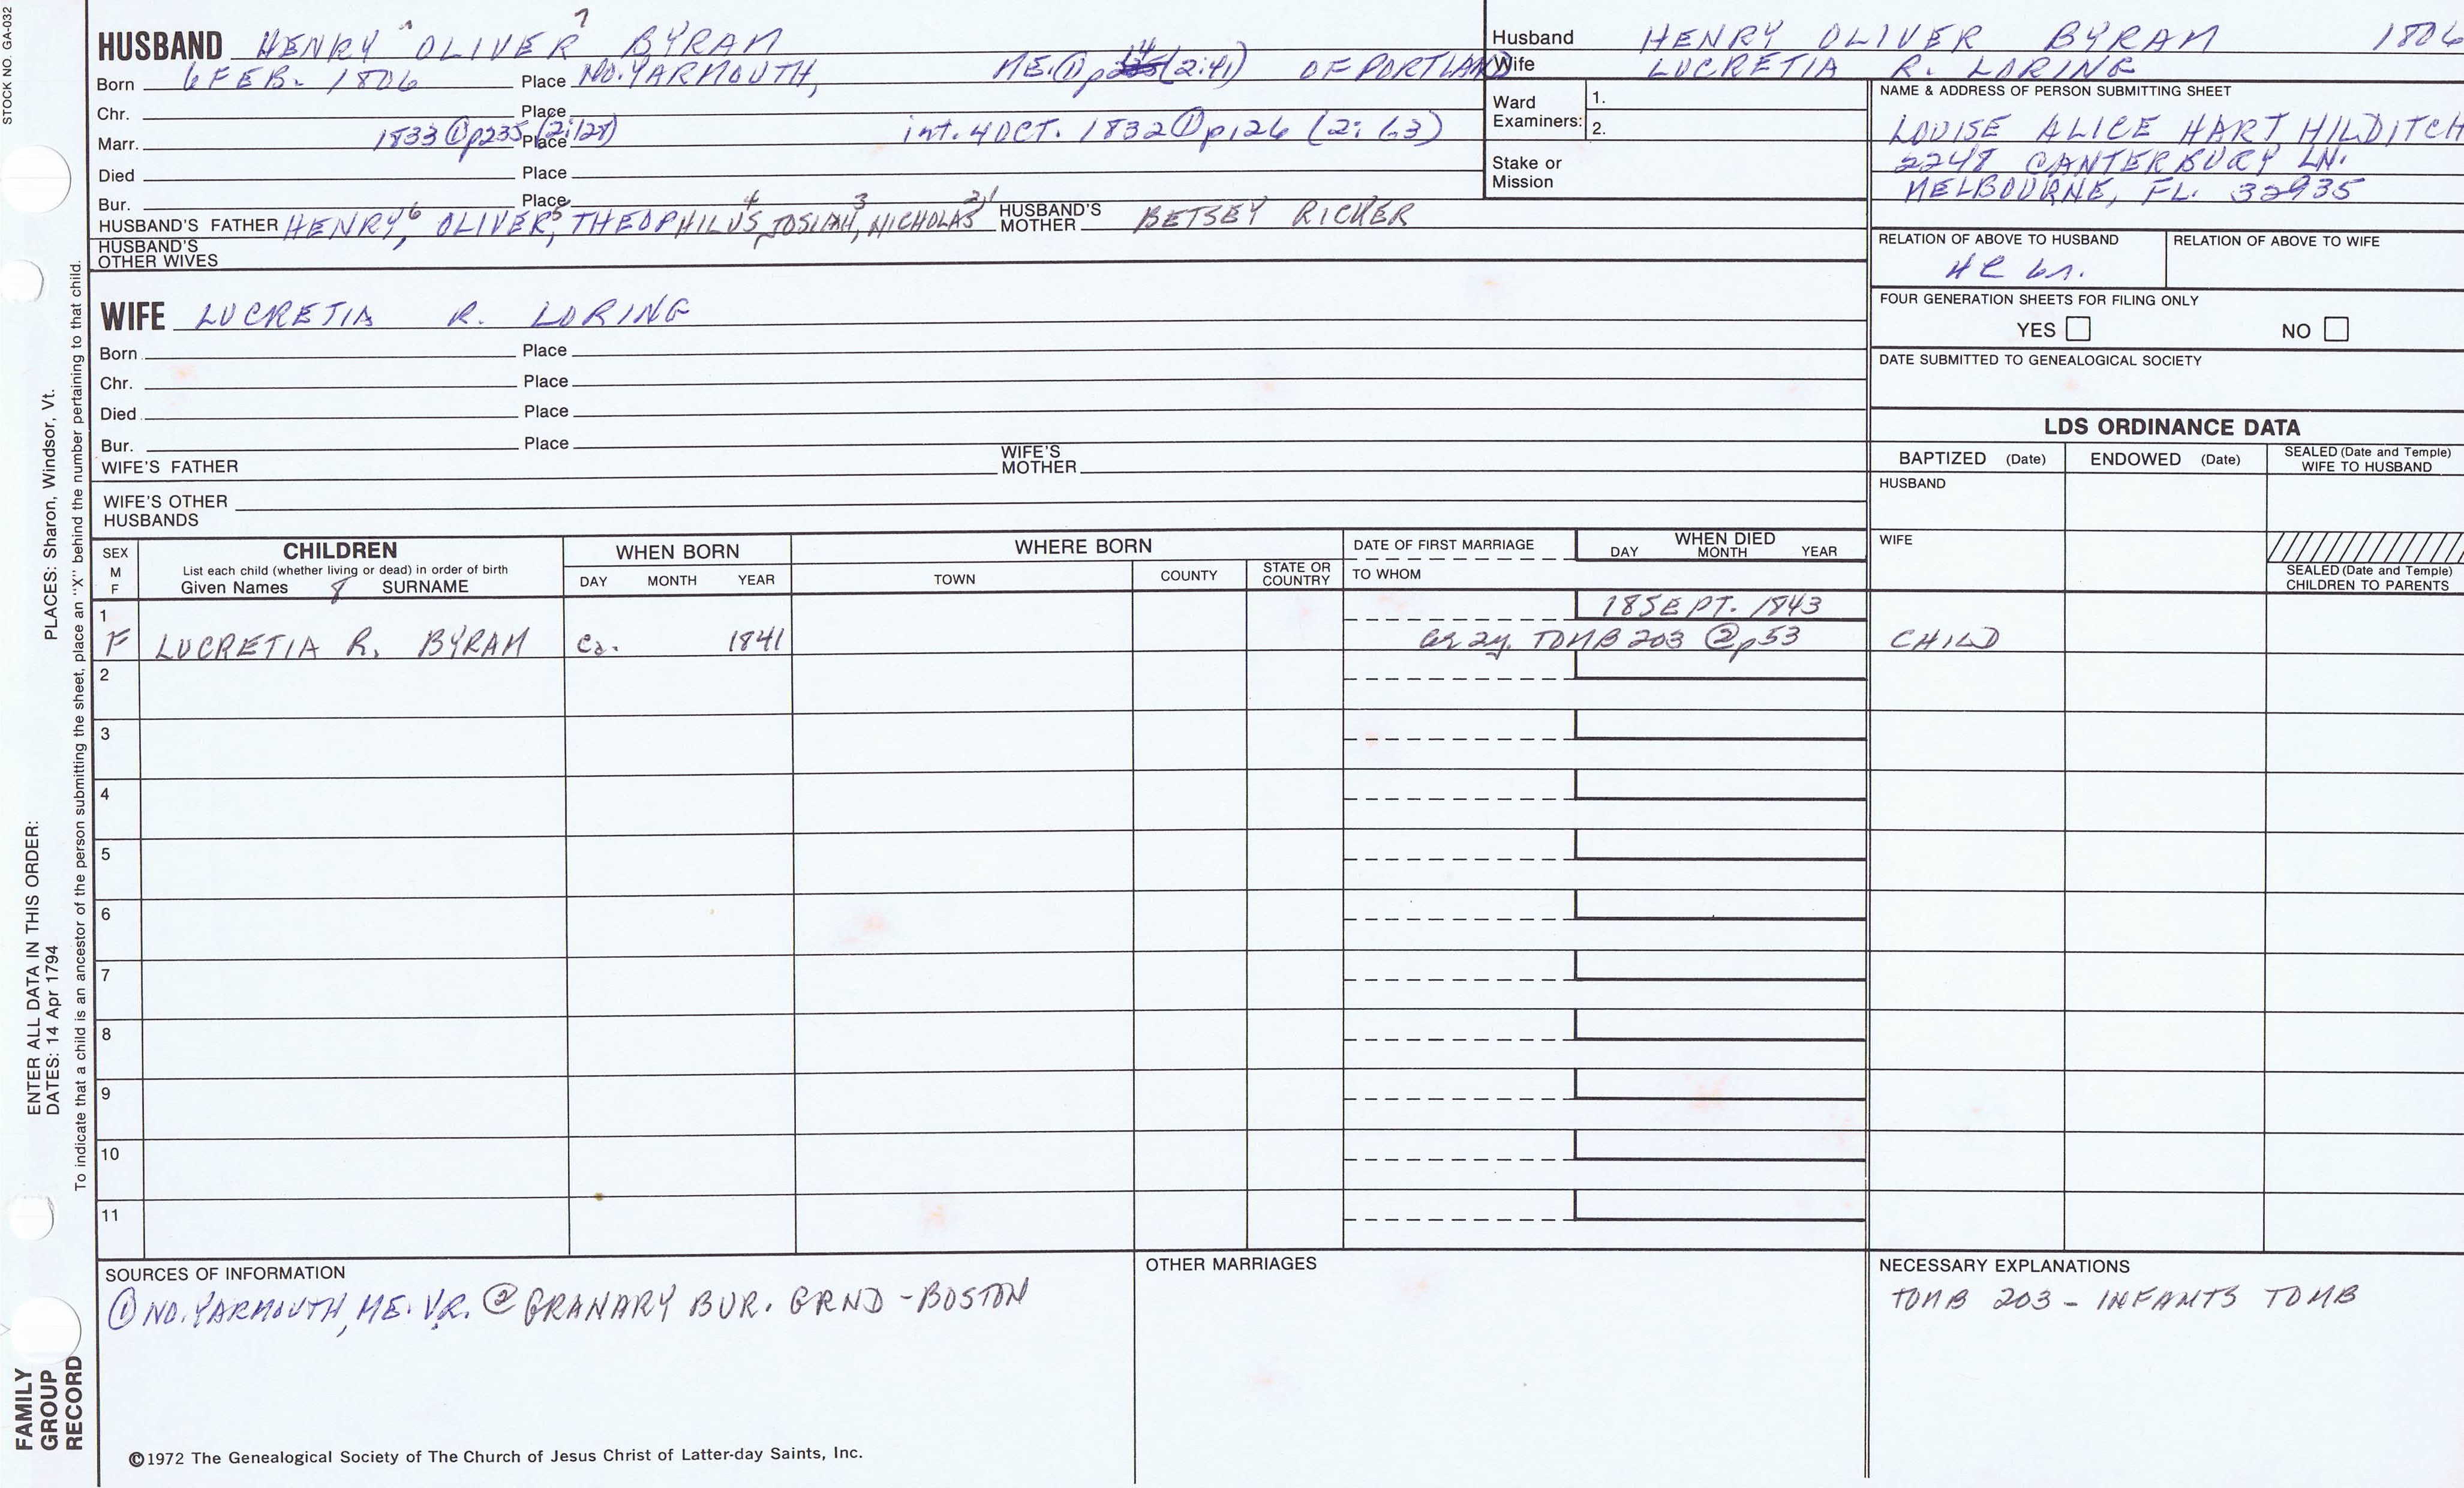 STOCK NO. GA-032
HUSBAND HENRY "OLIVER" 7 BYRAM
Born 6 FEB. 1806 Place NO. YARMOUTH, ME. ① p 14 (2:41) OF PORTLAND
Chr. Place
Marr. 1833 ① p235 (2:128) Place int. 4 OCT. 1832 ① p126 (2: 63)
Died Place
Bur. Place
HUSBAND'S FATHER HENRY 6, OLIVER 5, THEOPHILUS 4, JOSIAH 3, NICHOLAS 2,1 HUSBAND'S MOTHER BETSEY RICKER
HUSBAND'S OTHER WIVES
Husband HENRY OLIVER BYRAM 1806
Wife LUCRETIA R. LORING
Ward Examiners: 1.
2.
Stake or Mission
NAME & ADDRESS OF PERSON SUBMITTING SHEET
LOUISE ALICE HART HILDITCH
2248 CANTERBURY LN.
MELBOURNE, FL. 32935
RELATION OF ABOVE TO HUSBAND RELATION OF ABOVE TO WIFE
FOUR GENERATION SHEETS FOR FILING ONLY
YES NO
DATE SUBMITTED TO GENEALOGICAL SOCIETY
WIFE LUCRETIA R. LORING
Born Place
Chr. Place
Died Place
Bur. Place
WIFE'S FATHER WIFE'S MOTHER
WIFE'S OTHER HUSBANDS
LDS ORDINANCE DATA
BAPTIZED (Date) ENDOWED (Date) SEALED (Date and Temple) WIFE TO HUSBAND
HUSBAND
WIFE
SEALED (Date and Temple) CHILDREN TO PARENTS
SEX M F
CHILDREN
List each child (whether living or dead) in order of birth
Given Names 8 SURNAME
WHEN BORN
DAY MONTH YEAR
WHERE BORN
TOWN COUNTY STATE OR COUNTRY
DATE OF FIRST MARRIAGE
TO WHOM
WHEN DIED
DAY MONTH YEAR
1 18 SEPT. 1843
F LUCRETIA R. BYRAM ca. 1841 2y. TOMB 203 ② p53 CHILD
2
3
4
5
6
7
8
9
10
11
SOURCES OF INFORMATION
① NO. YARMOUTH, ME. V.R. ② GRANARY BUR. GRND - BOSTON
OTHER MARRIAGES
NECESSARY EXPLANATIONS
TOMB 203 - INFANTS TOMB
©1972 The Genealogical Society of The Church of Jesus Christ of Latter-day Saints, Inc.
FAMILY GROUP RECORD
ENTER ALL DATA IN THIS ORDER:
DATES: 14 Apr 1794
PLACES: Sharon, Windsor, Vt.
To indicate that a child is an ancestor of the person submitting the sheet, place an "X" behind the number pertaining to that child.